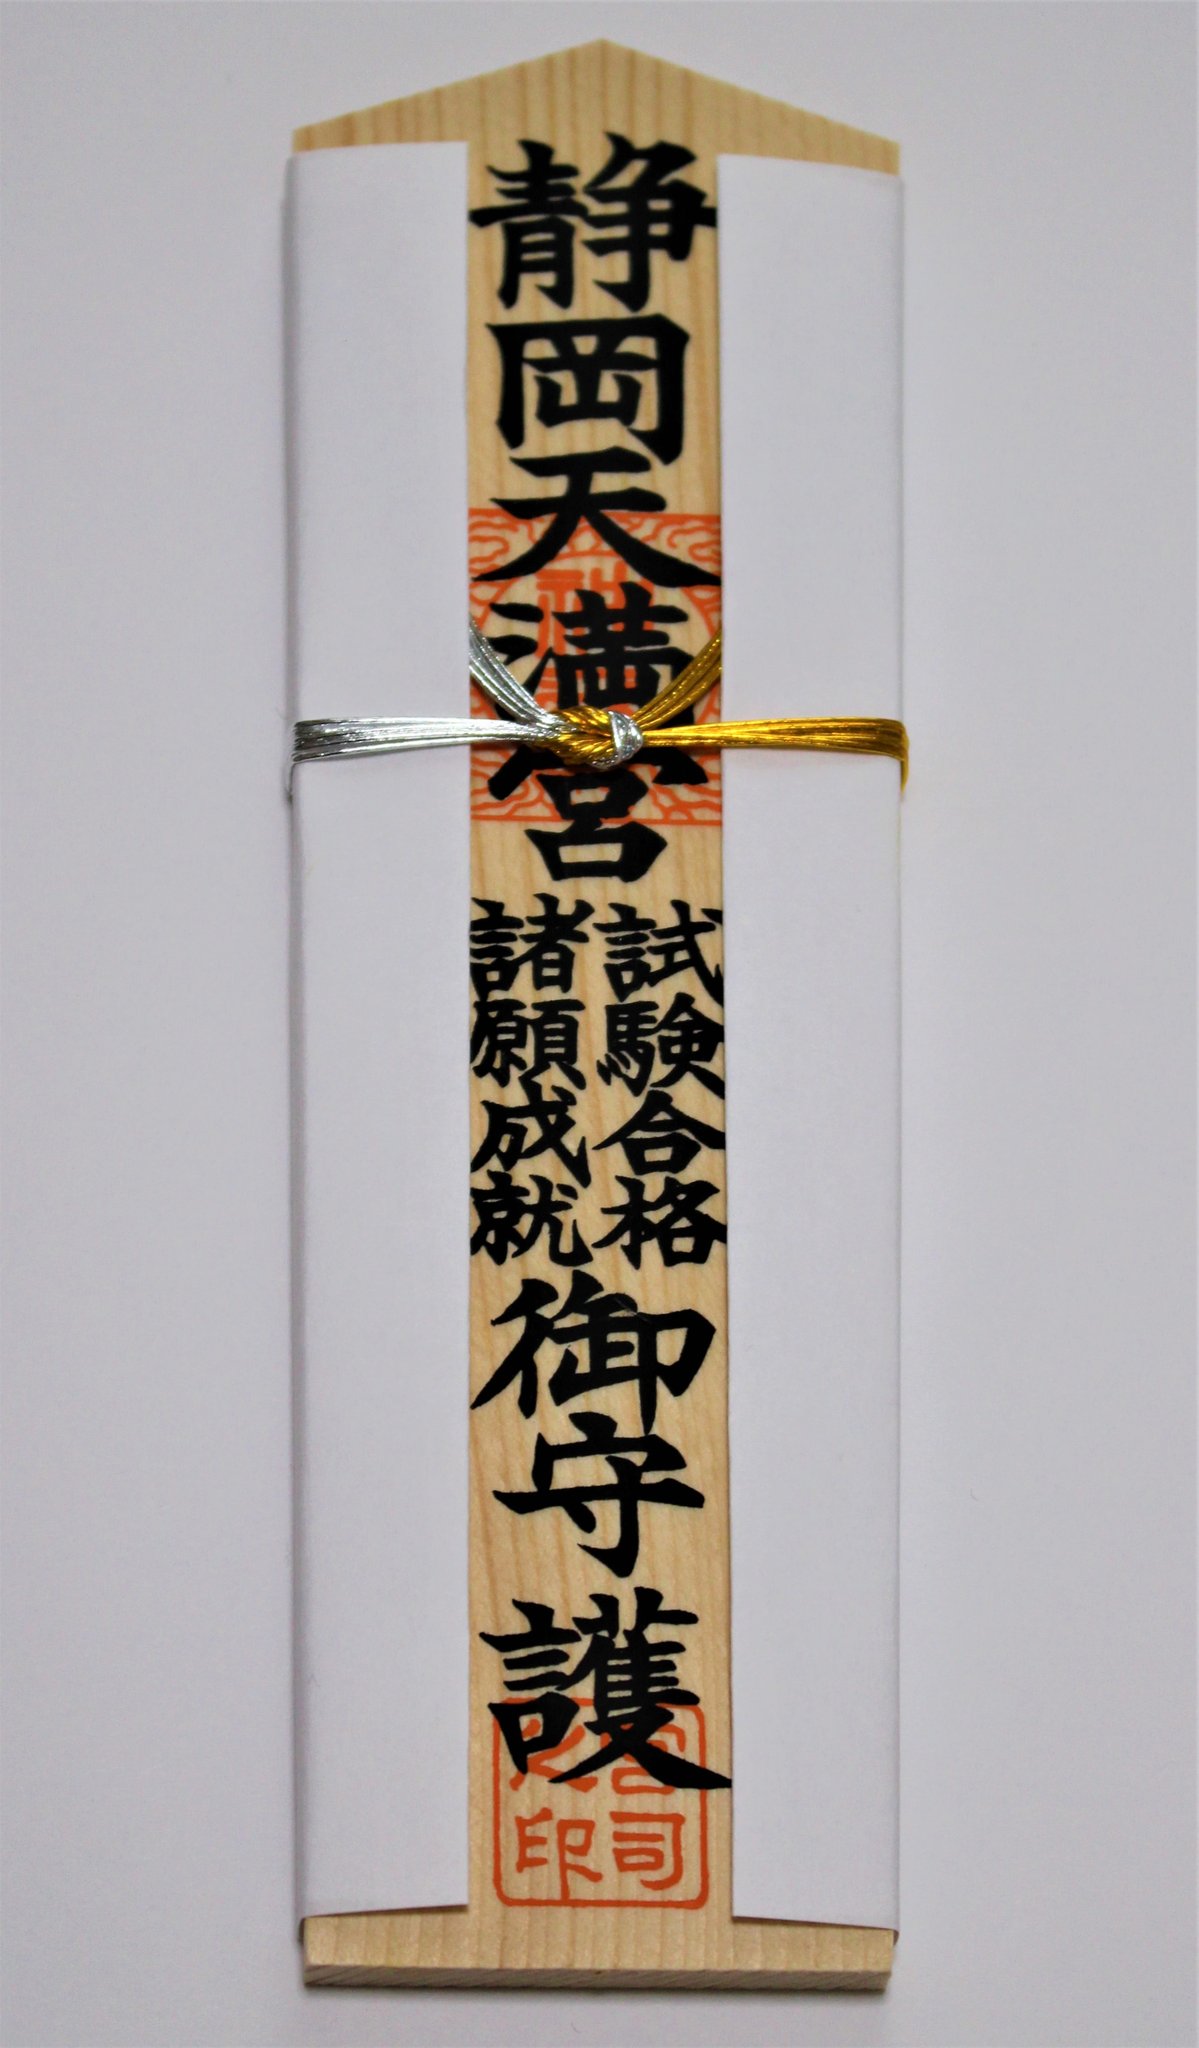 静岡天満宮
試験合格
諸願成就
御守護
宮司
之印